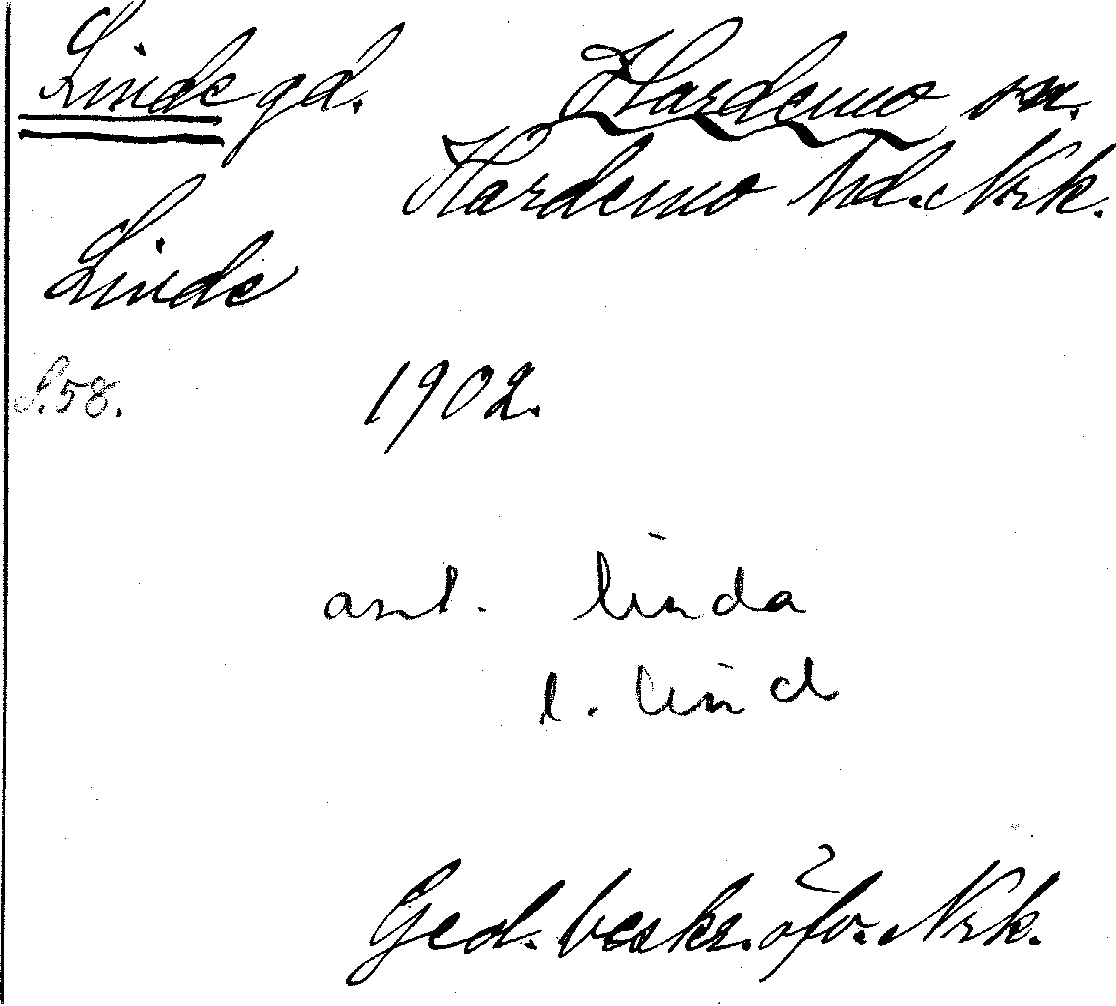 Linde gd. Hardemo sn.
Hardemo hd. Nrk.
Linde
S. 58. 1902.
ant. linda
l. lind
Geol. beskr. öfv. Nrk.